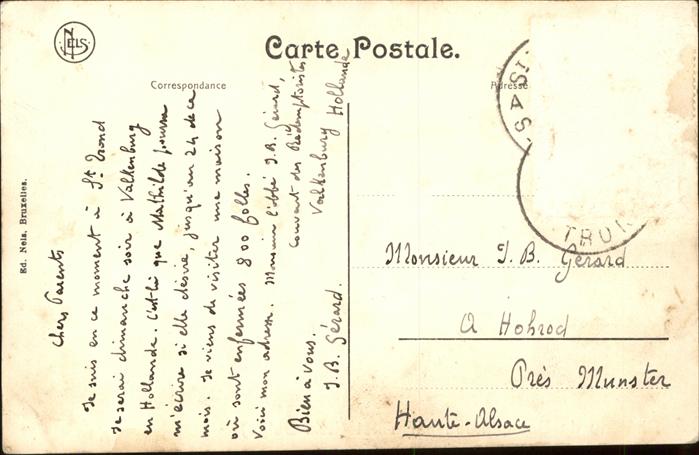 NELS
Carte Postale.
Correspondance
Adresse
Ed. Nels, Bruxelles.
Chers Parents
Je suis en ce moment à St. Trond
Je serai dimanche soir à Valkenburg
en Hollande. C'est là que Mathilde pourra
m'écrire si elle désire, jusqu'au 24 de ce
mois. Je viens de visiter une maison
où sont enfermées 800 folles.
Voici mon adresse. Monsieur l'abbé J. B. Gérard,
couvent des Rédemptoristes
Valkenburg Hollande
Bien à vous.
J. B. Gérard.
TRUI
Monsieur J. B. Gérard
à Hohrod
Près Munster
Haute-Alsace